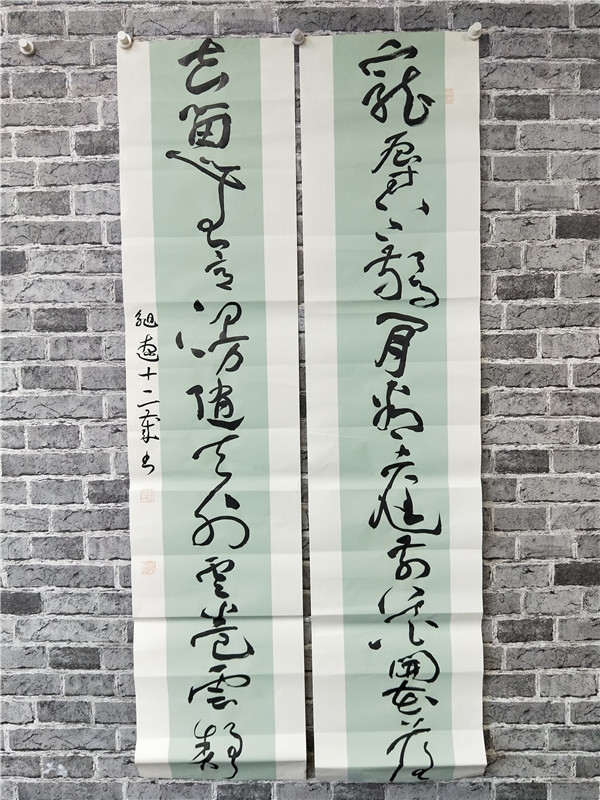 寵辱不驚閒看庭前花開花落
去留無意漫随天外雲卷雲舒
十二歲书